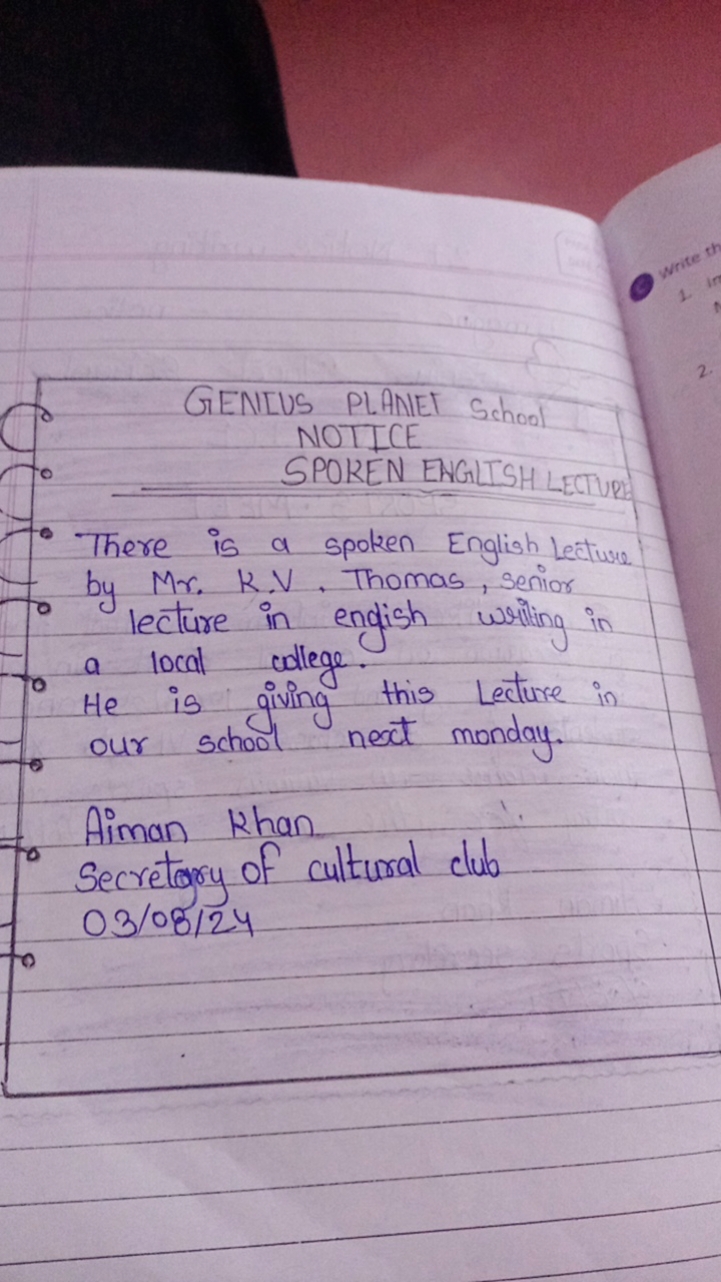 GENIUS PLANET School
NOTICE
SPOKEN ENGLISH LECTURE
There is a spoken English Lecture
by Mr. K.V. Thomas, senior
lecture in engish writing in
a local college.
He is giving this Lecture in
our school next monday.
Aiman Khan
Secretary of cultural club
03/08/24
Write th
1. In
2.